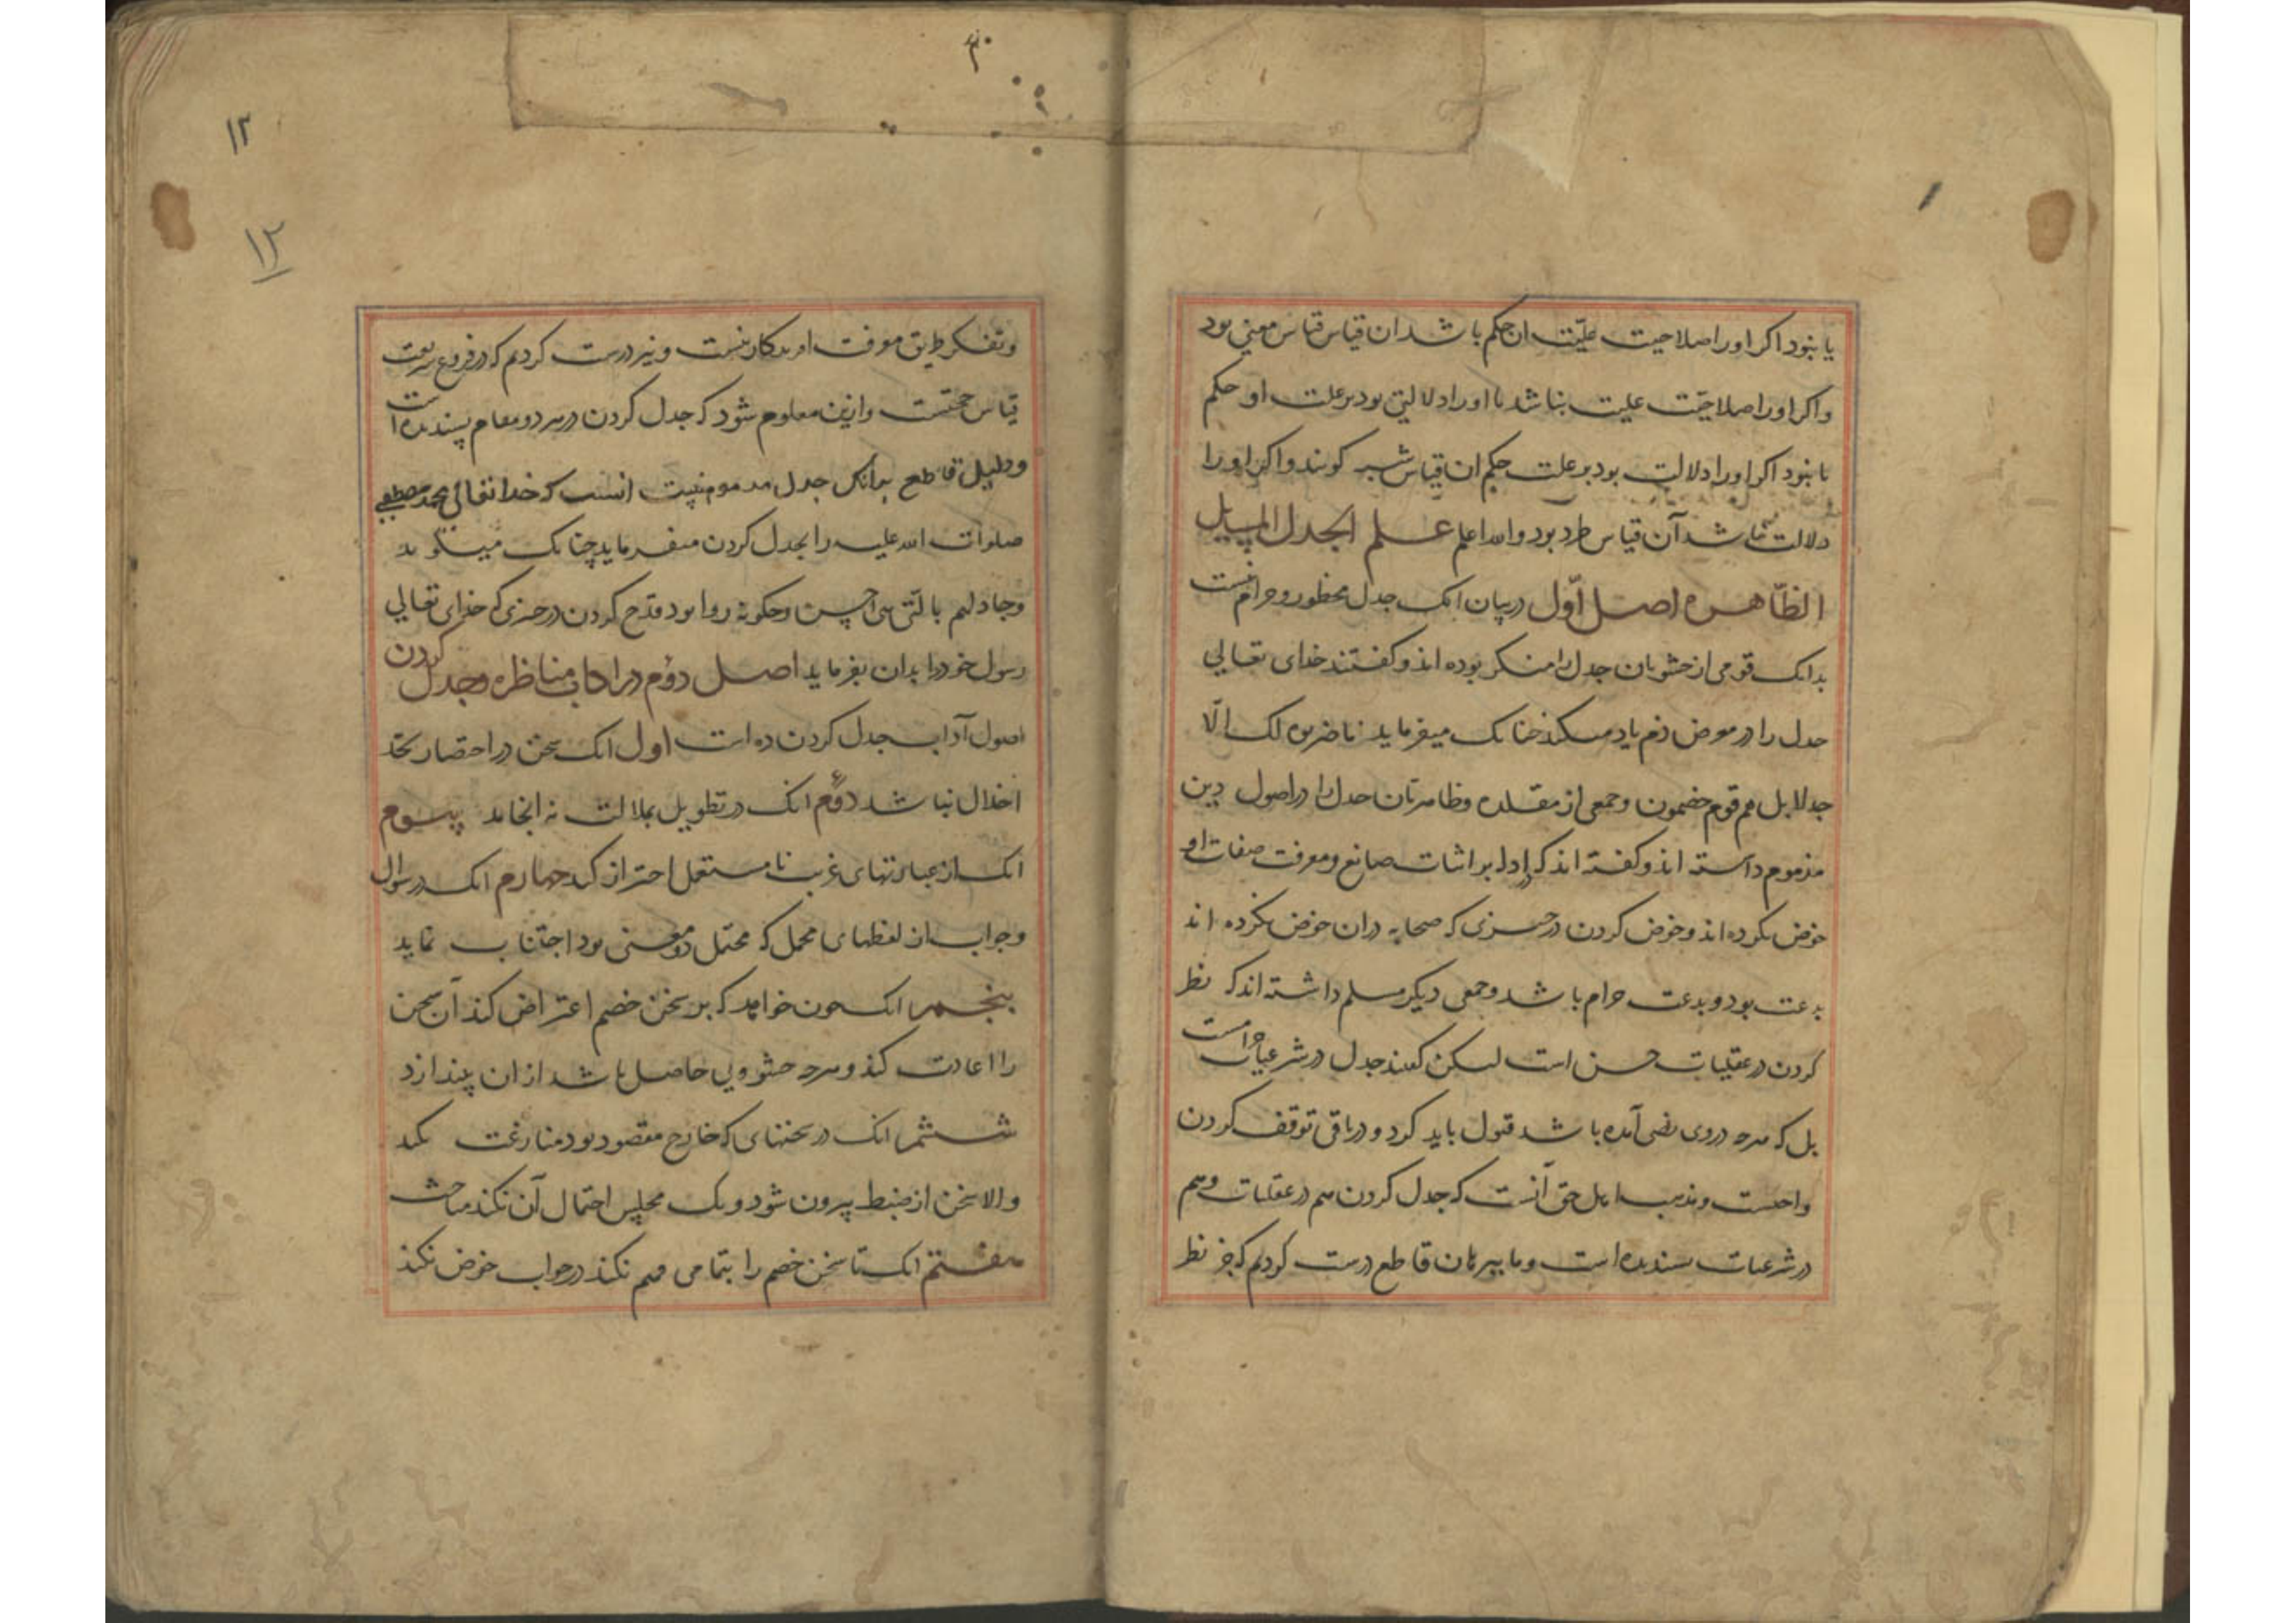 یا نبود اکر او را صلاحیت علیّت ان حکم باشد ان قیاس قیاس معنی بود
واکر او را صلاحیّت علیت نباشد یا او را دلالتی بود بر علت او حکم
یا نبود اکر او را دلالت بود بر علت حکم ان قیاس شبه کویند واکر او را
دلالت نباشد آن قیاس طرد بود والله اعلم علم الجدل المسایل
الظّاهره اصل اوّل در بیان انک جدل محظور و حرام نیست
بدانک قومی از حشویان جدل را منکر بوده اند و کفتند خدای تعالی
جدل را در معرض ذم یاد میکند چنانک میفرماید ما ضربوه لک الّا
جدلا بل هم قوم خصمون وجمعی از مقلده وظاهریان جدل را در اصول دین
مذموم داسته اند و کفته اند که در ادله بر اثبات صانع و معرفت صفات او
خوض نکرده اند و خوض کردن در چیزی که صحابه در ان خوض نکرده اند
بدعت بود و بدعت حرام باشد وجمعی دیکر مسلم داشته اند که نظر
کردن در عقلیات حسن است لیکن کفتند جدل در شرعیات حرامست
بل که هرچه در وی نص آمده باشد قبول باید کرد و در باقی توقف کردن
واجبست و مذهب اهل حق آنست که جدل کردن هم در عقلیات وهم
در شرعیات پسندیده است وما ببرهان قاطع درست کردیم که جز نظر
وتفکر طریق معرفت افریدکار نیست و نیز درست کردیم که در فروع شریعت
قیاس حجتست وازین معلوم شود که جدل کردن در هر دو مقام پسندیده است
ودلیل قاطع بدانک جدل مذموم نیست انست که خدا تعالی محمد مصطفی
صلوات الله علیه را بجدل کردن میفرماید چنانک میکوید
وجادلهم بالّتی هی احسن وچکونه روا بود قدح کردن در چیزی که خدای تعالی
رسول خود را بدان بفرماید اصل دوّم در اداب مناظره وجدل کردن
اصول آداب جدل کردن ده است اول انک سخن در اختصار بحد
اخلال نباشد دوّم انک در تطویل بملالت نه انجامد سیوم
انک از عبارتهای غریب نا مستعمل احتراز کند چهارم انک در سوال
وجواب از لفظهای مجمل که محتمل دو معنی بود اجتناب نماید
پنجم انک چون خواهد که بر سخن خصم اعتراض کند آن سخن
را اعادت کند و هرچه حشو وبی حاصل باشد از ان بیندازد
ششم انک در سخنهای که خارج مقصود بود منازعت نکند
والا سخن از ضبط بیرون شود ویک مجلس احتمال آن نکند مباحث
هفتم انک تا سخن خصم را بتمامی فهم نکند در جواب خوض نکند
۱۲
۱۲